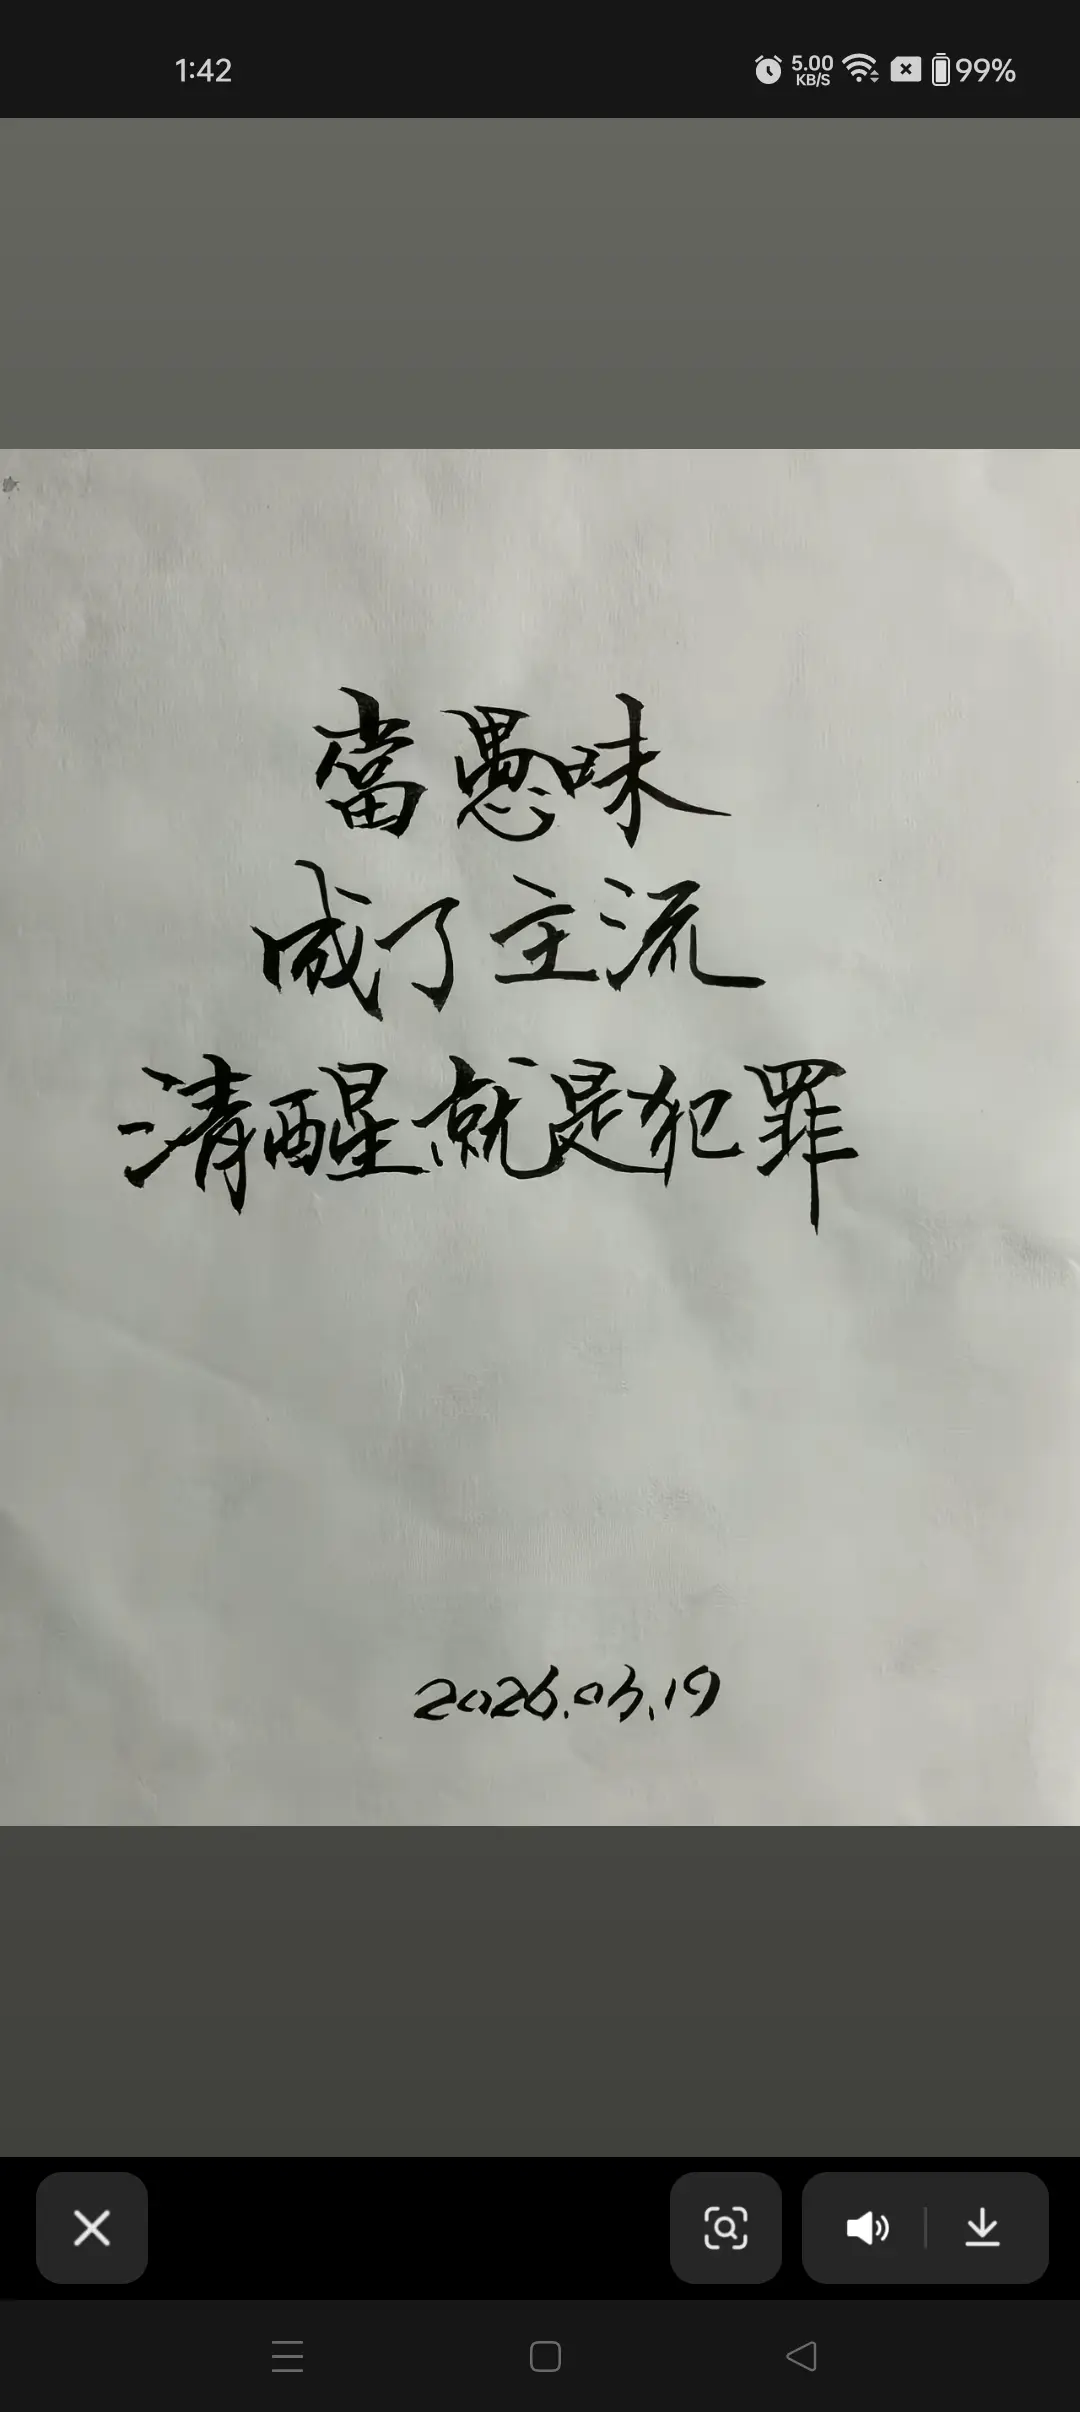 1:42
5.00
KB/S
99%
當愚昧
成了主流
清醒就是犯罪
2026.03.19